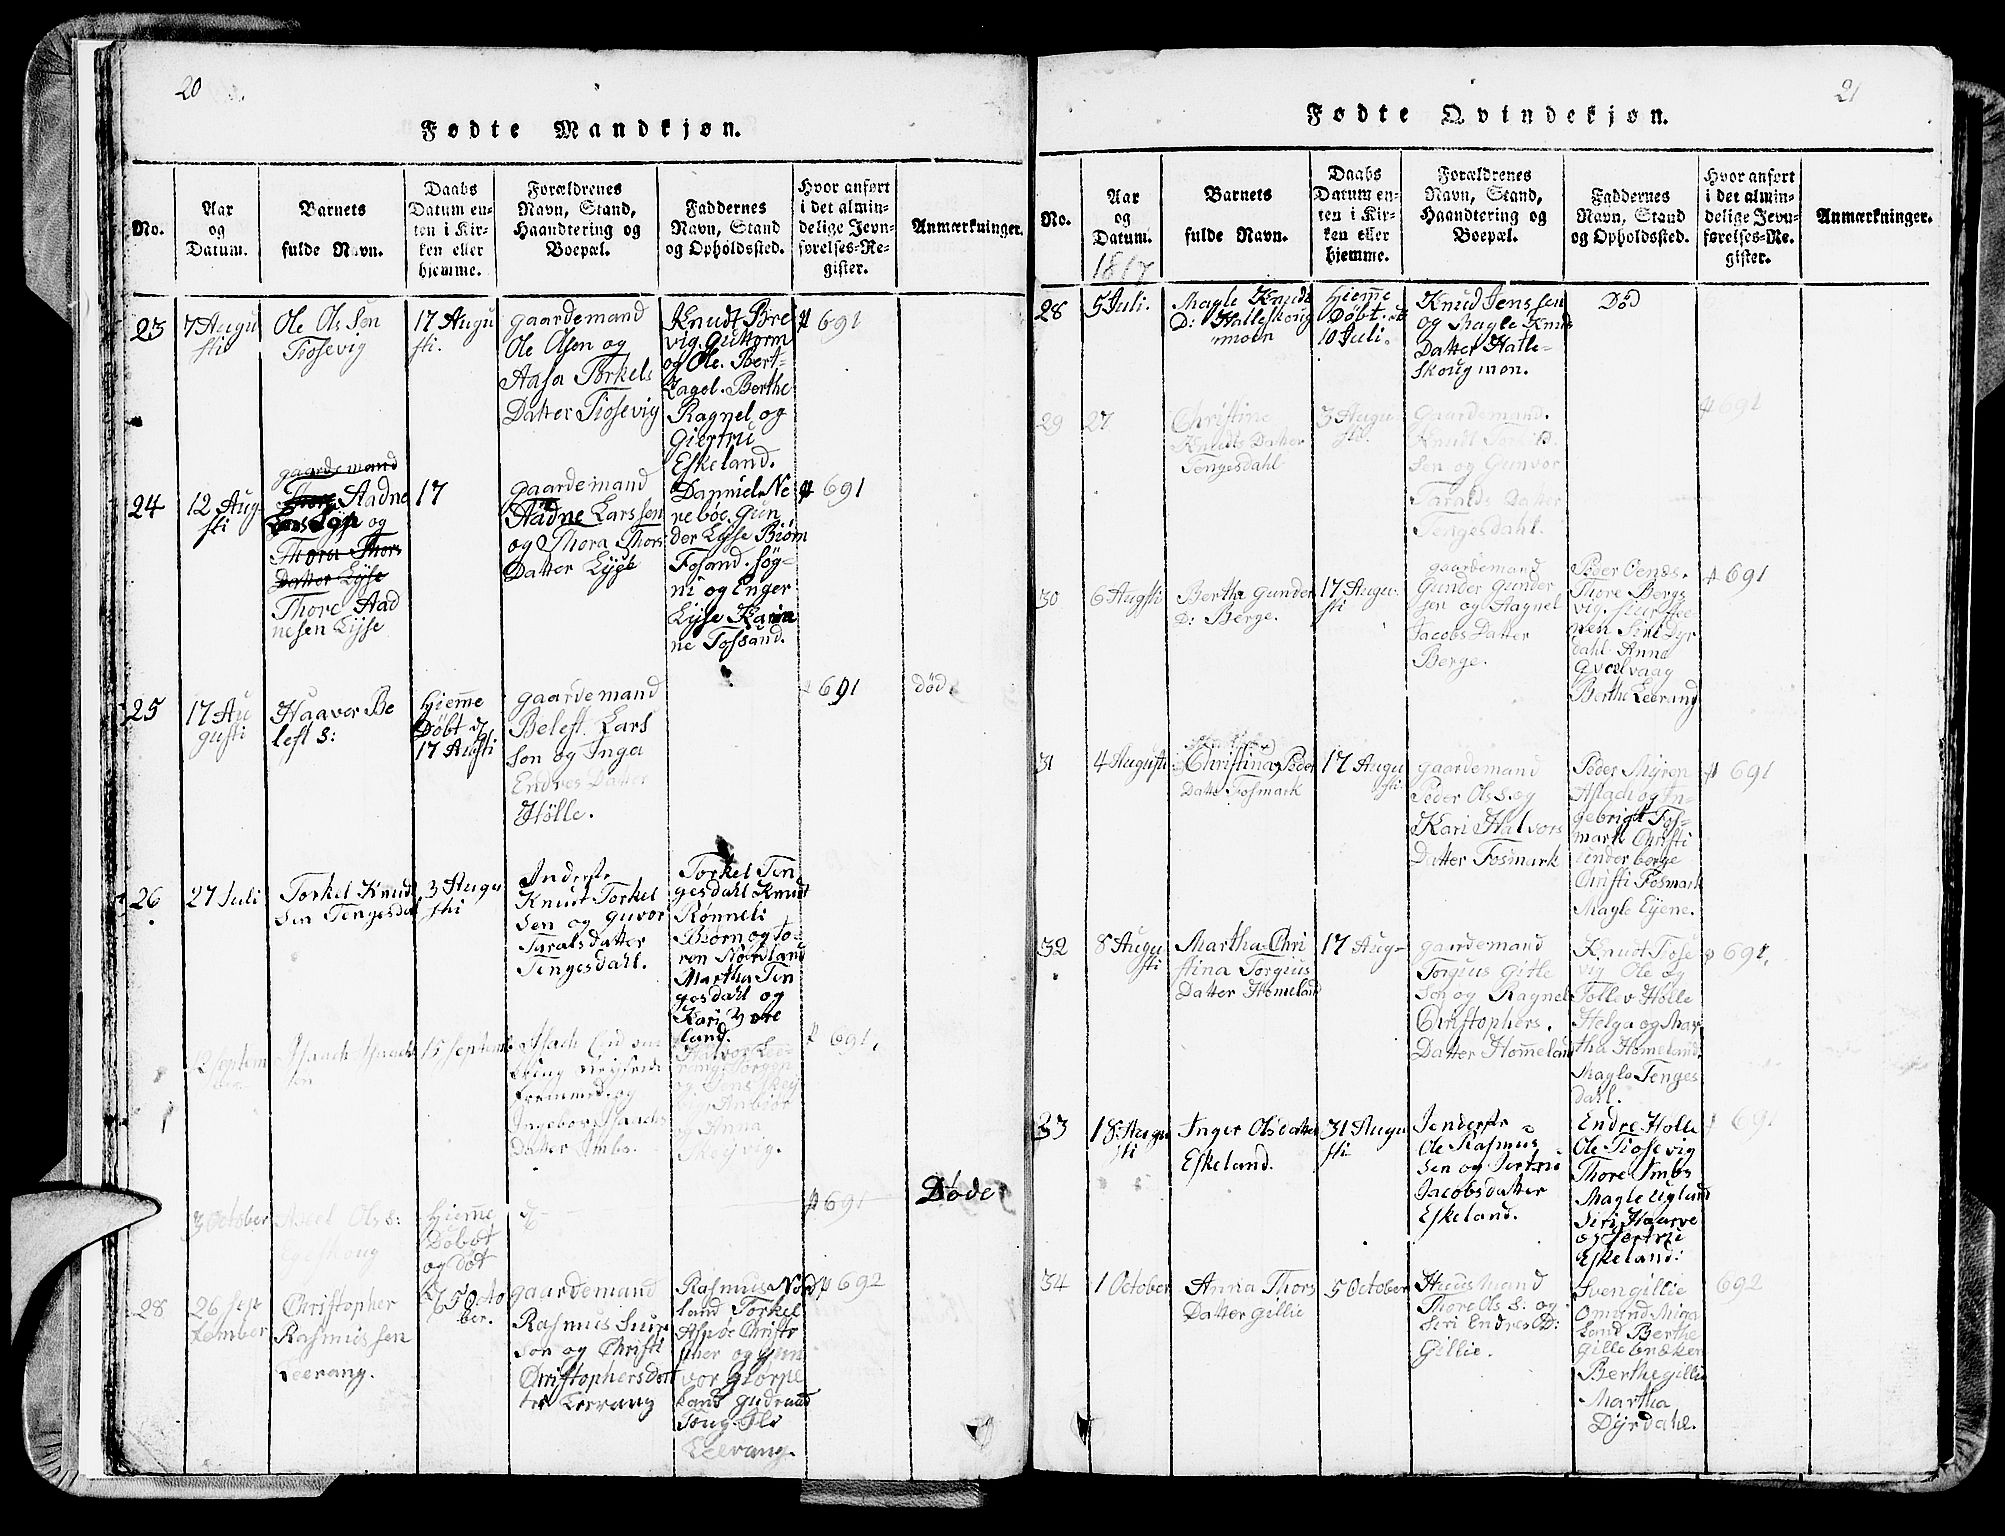 20
Fødte Mandkjøn.
No.
Aar
og
Datum.
Barnets
fulde Navn.
Daabs
Datum en-
ten i Kir-
ken eller
hjemme.
Forældrenes
Navn, Stand,
Haandtering og
Boepæl.
Faddernes
Navn, Stand
og Opholdssted.
Hvor anført
i det almin-
delige Jevn-
førelses-Re-
gister.
Anmærkninger.
23
7 Augu
sti
Ole Ols Søn
Tiosevig
17 Augu
sti.
gaardemand
Ole Olsen og
Aasa Torkels
Datter Tiosevig
Knudt Bre
vig. Guttorm
og Ole. Bert-
Lagel. Berthe
Ragnel og
Giertrù
Eskeland.
691
24
12 Aug
sti
gaardemand
Aadne
og
Thora Thors
Datter Lÿse
Thore Aad
nesen Lÿse
17
gaardemand
Aadne Larssen
og Thora Thors
Datter Lÿse
Danniel Ne
rebøe. Gun
der Lÿse Biørn
Fosand. søg-
ni og Enger
Lÿse Karin
ne Fossand.
691
25
17 Au
gusti
Haavor Be
lest S:
Hieme
Døbt d
17 Augsti
gaardemand
Belest Lars
søn og Inga
Endres Datter
Hølle.
691
død
26
27 Juli
Torkel Knud
Sen Tengesdal
3 Augu
sti
Inderste
Knut Torkel
Sen og guvor
Taralsdatter
Tengesdahl.
Torkel Ten
gesdahl Knudt
Rønneli
Biørn og To-
ren Nordland
Martha Ten
gesdahl og
Kari
land.
2 Septem
15 Septemb
Ingebor
Datter Imbs.
og Jens
og Anna
691
3 October
Axel Ols S:
Egeskoug
Hieme
Døbt
og døt
691
Døde
28
26 Sep
tember
Christopher
Rasmussen
Leerang.
5 Octo
ber.
gaardemand
Rasmus
Søn og Christi
Christophersdat
ter Leerang
Rasmus Nord
land Torkel
Aspøe Christo
pher og Gun
vor Giørpe
land gudrund
Leerang.
692
21
Fødte Qvindekjøn.
No.
Aar
og
Datum.
1817
Barnets
fulde Navn.
Daabs
Datum en-
ten i Kir-
ken eller
hjemme.
Forældrenes
Navn, Stand,
Haandtering og
Boepæl.
Faddernes
Navn, Stand
og Opholdssted.
Hvor anført
i det almin-
delige Jevn-
førelses-Re-
gister.
Anmærkninger.
28
5 Juli.
Magle Knuds
D: Halleskoug
moen
Hieme
Døbt d
10 Juli.
Knud Jenssen
og Magle Knuds
Datter Hatle-
skougmon.
Død
29
27
Christine
Knudts Datter
Tengesdahl
3 Augu
sti.
Gaardemand.
Knudt Torkild
Sen og Gunvor
Taralds Datter
Tengesdahl.
691
30
6 Augsti
Bertha Gunder
D: Berge.
17 Augu-
sti
gaardemand
Gunder Gunder
sen og Aagnel
Jacobs Datter
Berge.
Peder Oenæs.
Thore Bergs
vig.
Siri Dyr
dahl. Anna
Qvalvaag
Berthe Leerang
691
31
4 Augusti
Christina Peder
Datter Fosmark
17 Augu
sti.
gaardemand
Peder Ols S. og
Kari Halvors
Datter Fosmark
Peder Myren
Aslach og In-
gebrigt Fos-
mark Christi
ender berge
Christi Fosmark
Magle Eyene.
691
32
8 Augu
sti
Martha Chri
stina Torgius
Datter Homeland
17 Aug-
gaardemand
Torgius Gitle
Søn og Ragnel
Christophers.
Datter Homeland
Knudt Tiose
vig Ole og
Tollev Hølle
Helga og Mar
tha Homeland
Magle Tenges
dahl.
691.
33
18 Augu
sti
Inger Olsdatter
Eskeland.
31 Augu
sti
Inderste
Ole Rasmus
Sen og Jertrù
Jacobsdatter
Eskeland.
Endre Hølle
Ole Tiosevig
Thore Imbs
Magle Uglund
Siri Haarve
og Jertrùe
Eskeland:
691
34
1 October
Anna Thors
Datter Gillie
5 October
Huusmand
Thore Ols S: og
Siri Endres D:
Gillie.
Sven Gillie
Omund Miga
land Berthe
Gillebræken
Berthe Gillie
Martha
Dÿrdahl.
692